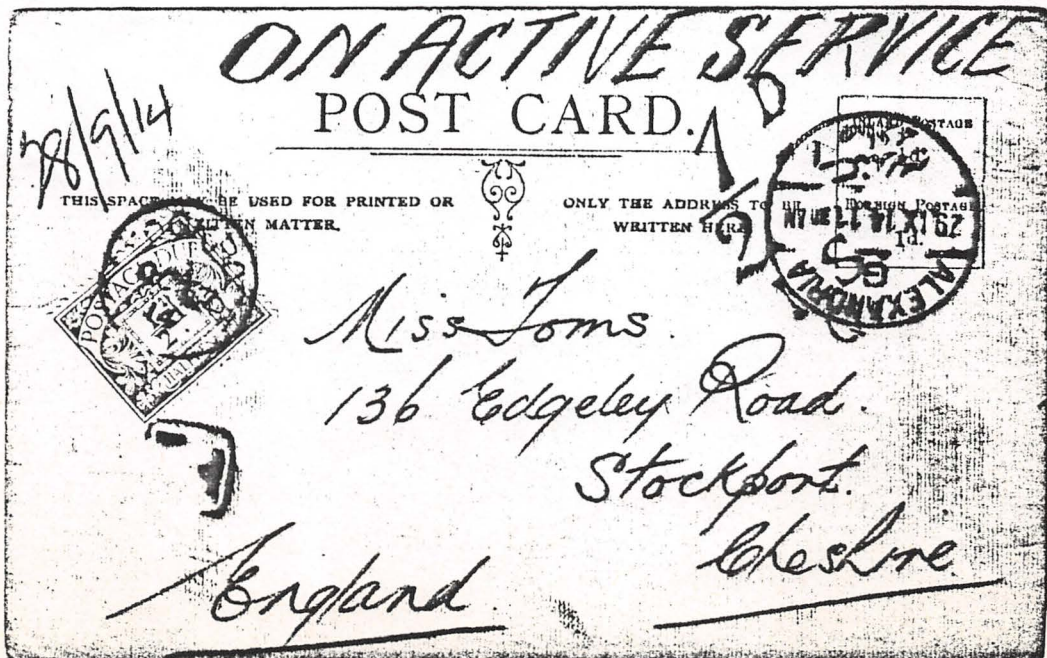 ON ACTIVE SERVICE
POST CARD.
28/9/14
THIS SPACE MAY BE USED FOR PRINTED OR
WRITTEN MATTER.
ONLY THE ADDRESS TO BE
WRITTEN HERE
INLAND POSTAGE
FOREIGN POSTAGE
1d.
ALEXANDRIA
29 IX 14 11 AM
POSTAGE DUE
Miss Toms.
136 Edgeley Road.
Stockport.
Cheshire.
England.